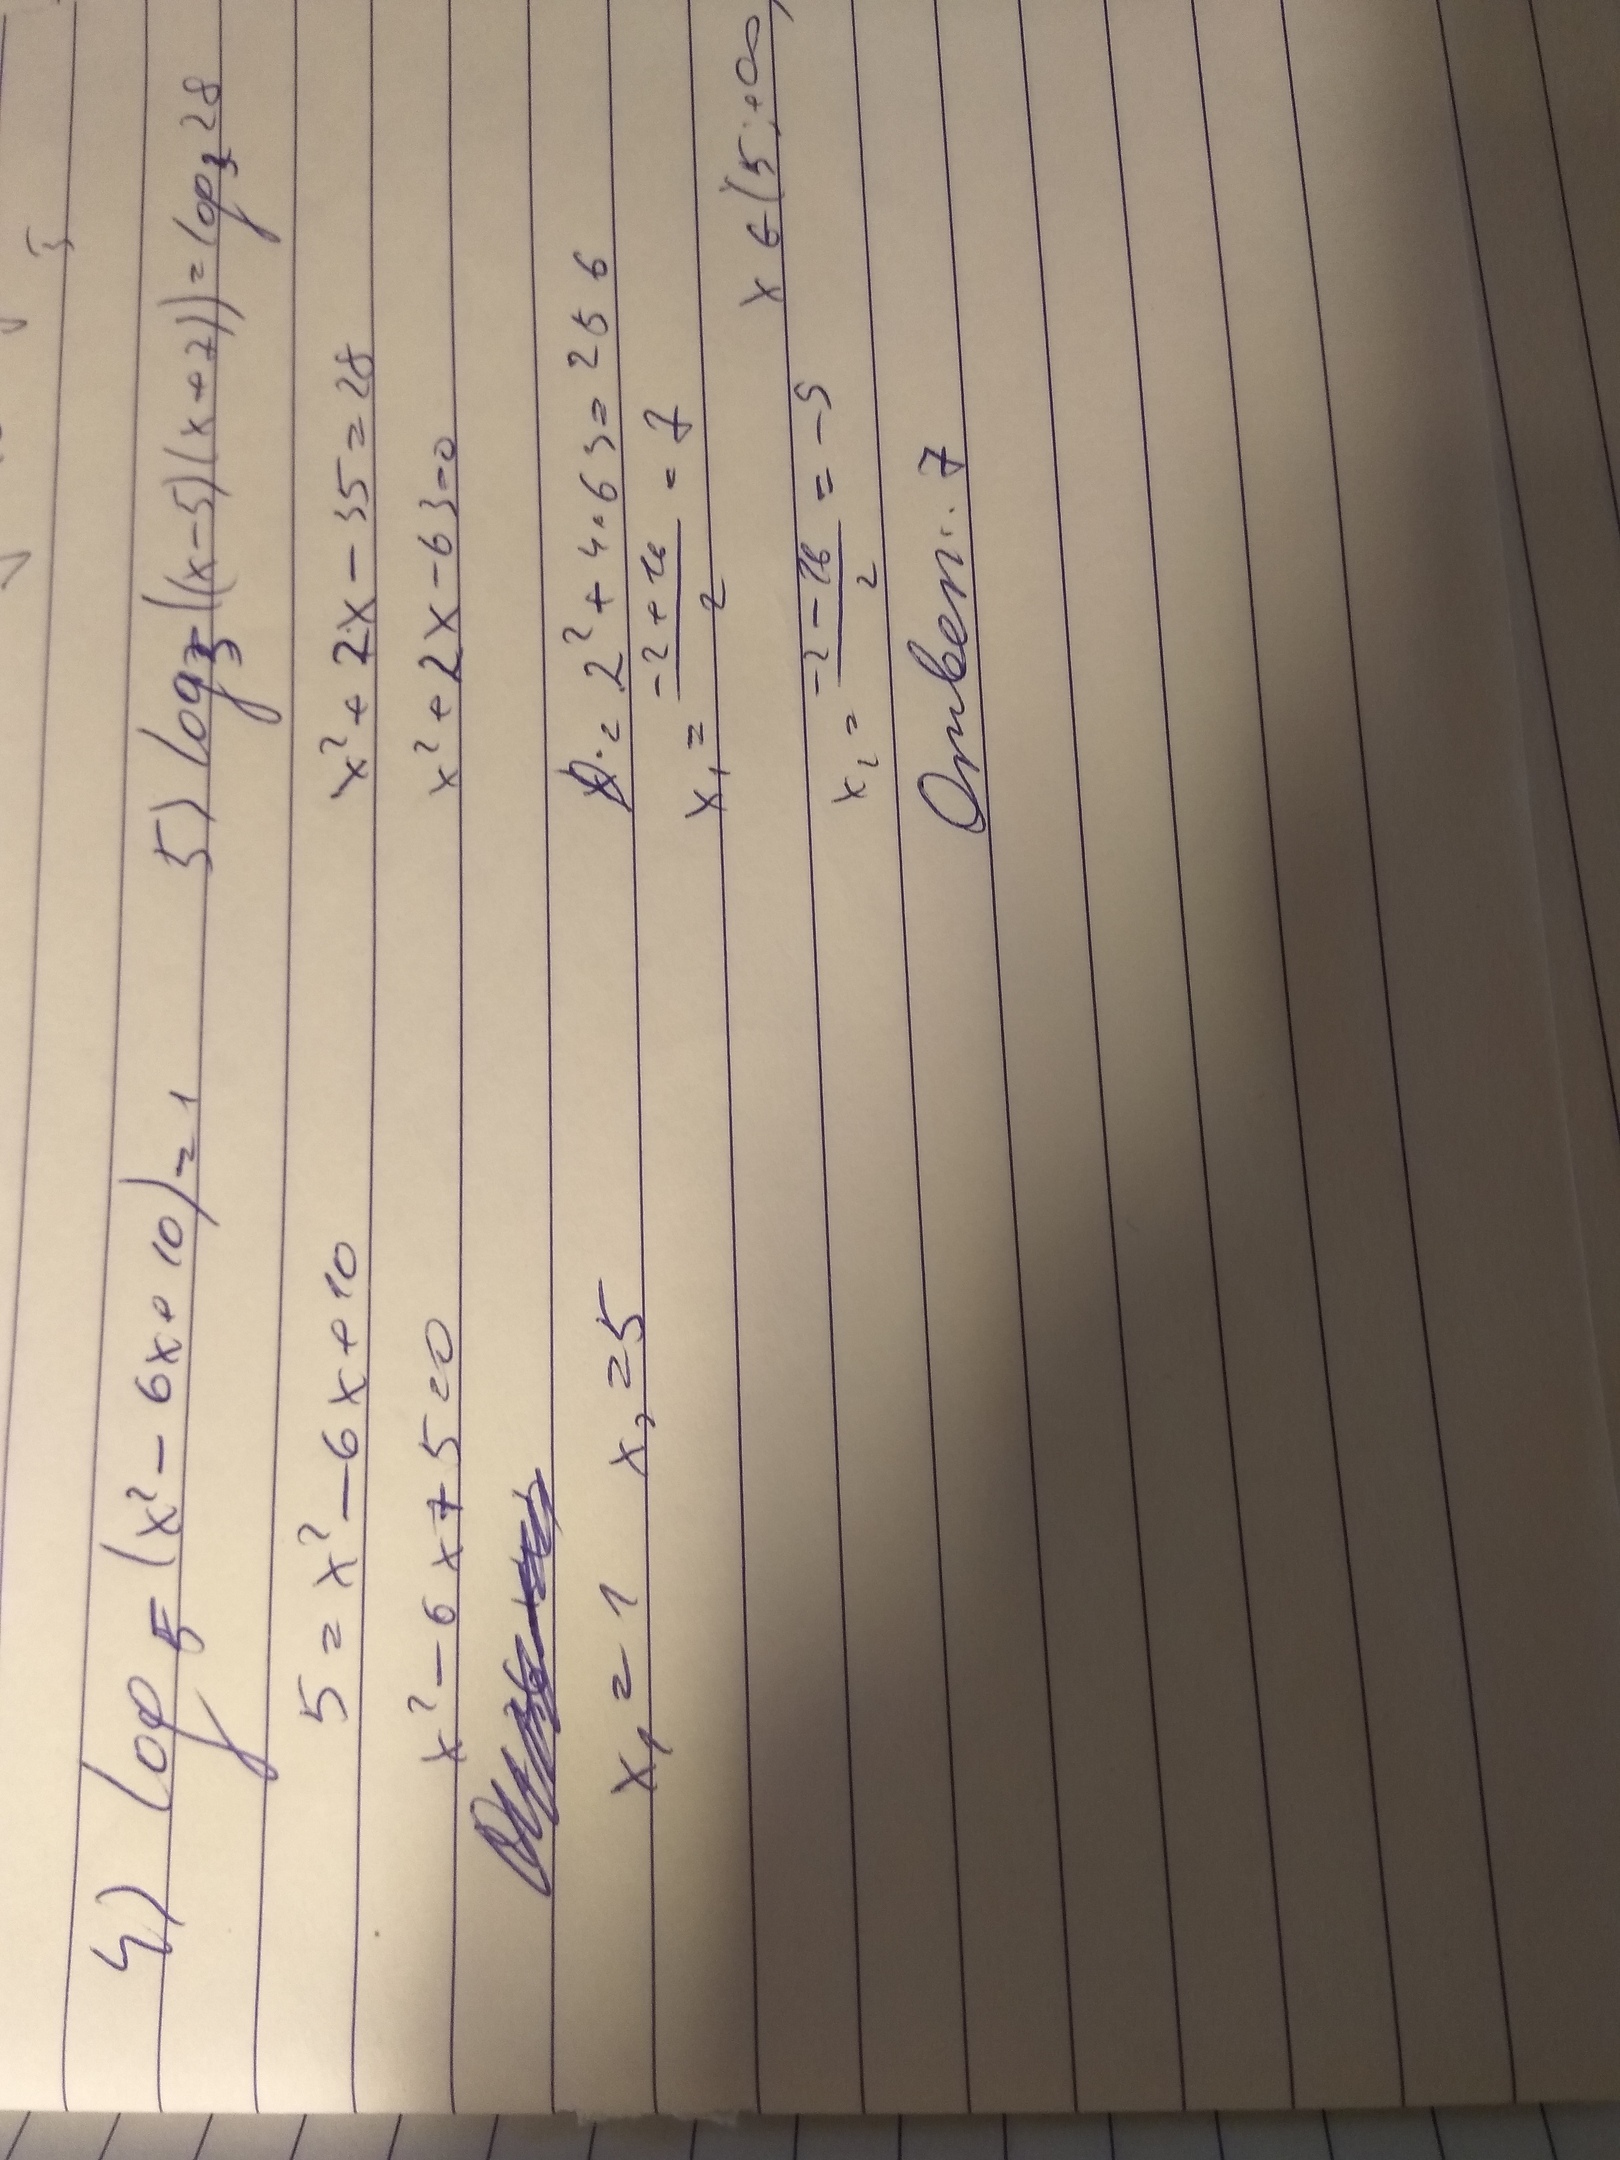 4) log₅(x² - 6x + 10) = 1
5 = x² - 6x + 10
x² - 6x + 5 = 0
x₁ = 1 x₂ = 5
5) log₃((x-5)(x+7)) = log₃28
x² + 2x - 35 = 28
x² + 2x - 63 = 0
D = 2² + 4·63 = 256
x₁ = (-2+16)/2 = 7
x ∈ (5; +∞)
x₂ = (-2-16)/2 = -9
Ответ: 7